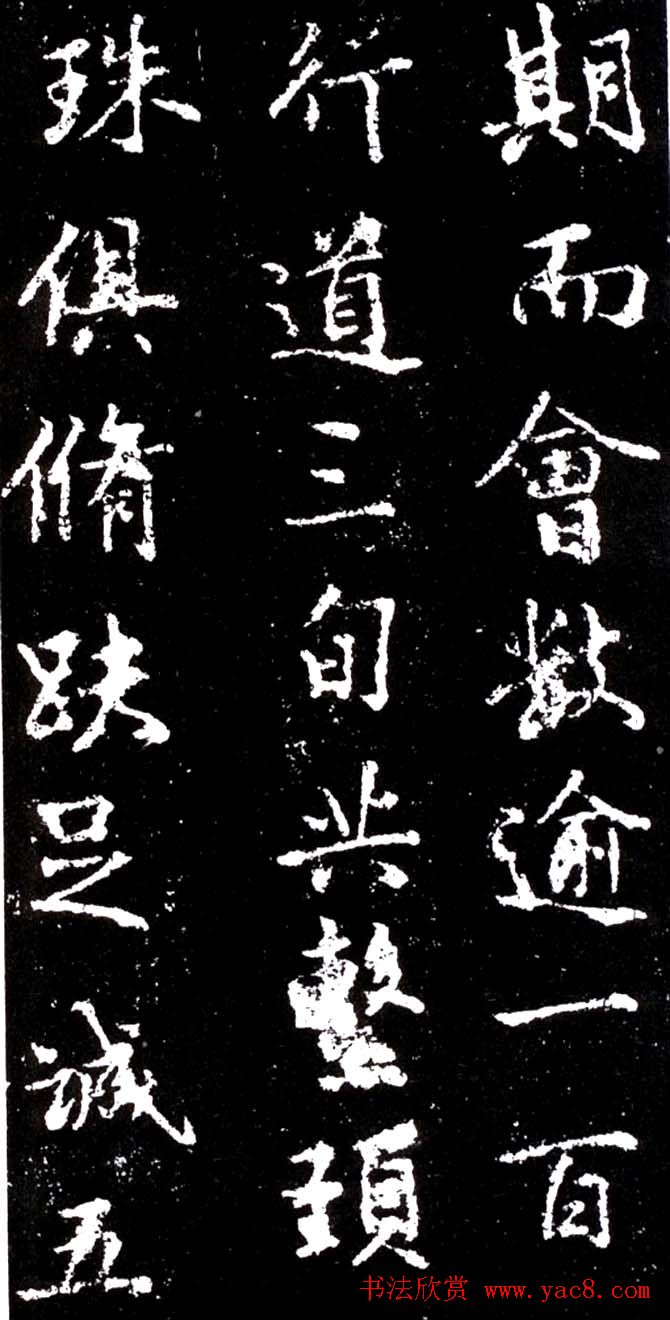 期而會數逾一百
行道三旬共繫頚
珠俱脩趺足誠五
书法欣赏 www.yac8.com